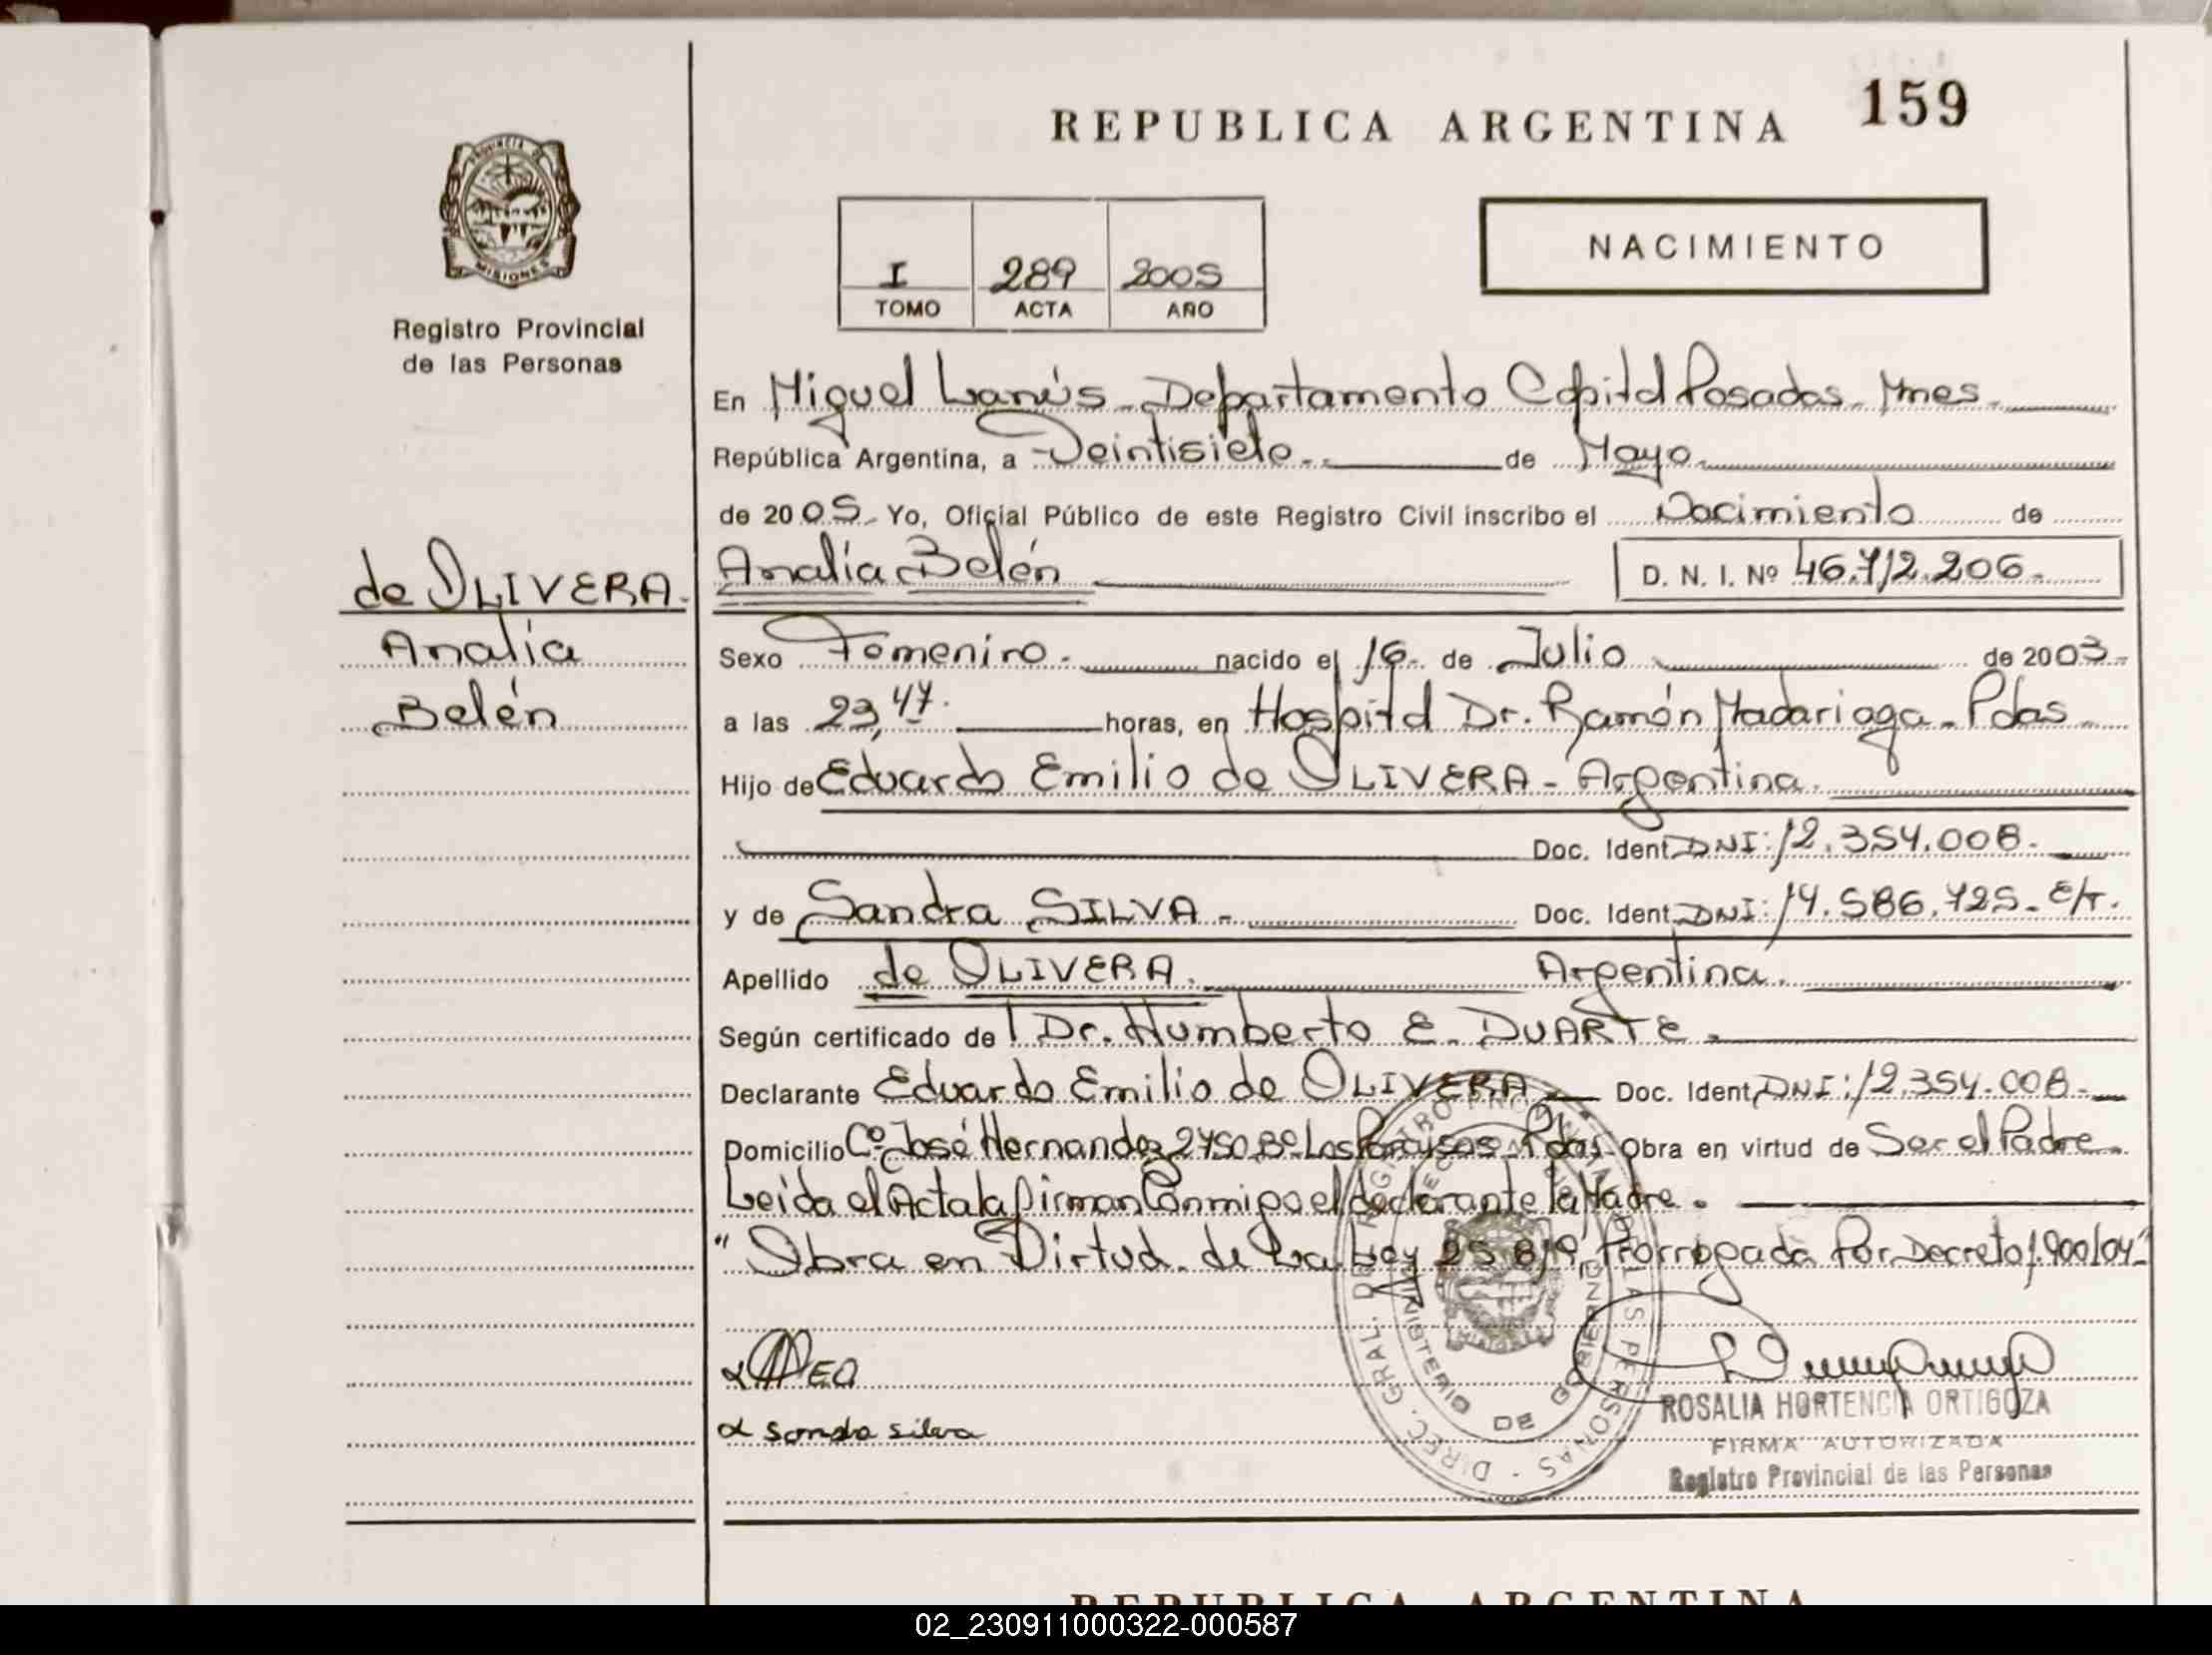 REPUBLICA ARGENTINA 159
PROVINCIA DE
MISIONES
Registro Provincial
de las Personas
NACIMIENTO
I 289 2005
TOMO ACTA AÑO
En Miguel Lanús - Departamento Capital Posadas - Mnes -
República Argentina, a Veintisiete - de Mayo
de 2005 - Yo, Oficial Público de este Registro Civil inscribo el Nacimiento de
de OLIVERA.
Analía
Belén
Analía Belén D. N. I. Nº 46.712.206.
Sexo Femenino. nacido el 16 de Julio de 2003.
a las 23,47. horas, en Hospital Dr. Ramón Madariaga - Pdas -
Hijo de Eduardo Emilio de OLIVERA - Argentina.
Doc. Ident. DNI: 12.354.008.
y de Sandra SILVA - Doc. Ident. DNI: 14.586.725. E/T.
Apellido de OLIVERA. Argentina.
Según certificado de Dr. Humberto E. DUARTE.
Declarante Eduardo Emilio de OLIVERA Doc. Ident. DNI: 12.354.008.
Domicilio Cº José Hernandez 2750 Bº Los Paraisos - Pdas - Obra en virtud de Ser el Padre.
Leída el Acta la firman Conmigo el declarante la Madre.
"Obra en Virtud de La Ley 25.819, Prorrogada Por Decreto 1.900/04"
Sandra Silva
DIREC. GRAL. DEL REGISTRO PROVINCIAL DE LAS PERSONAS
MINISTERIO DE GOBIERNO
ROSALIA HORTENCIA ORTIGOZA
FIRMA AUTORIZADA
Registro Provincial de las Personas
REPUBLICA ARGENTINA
02_230911000322-000587